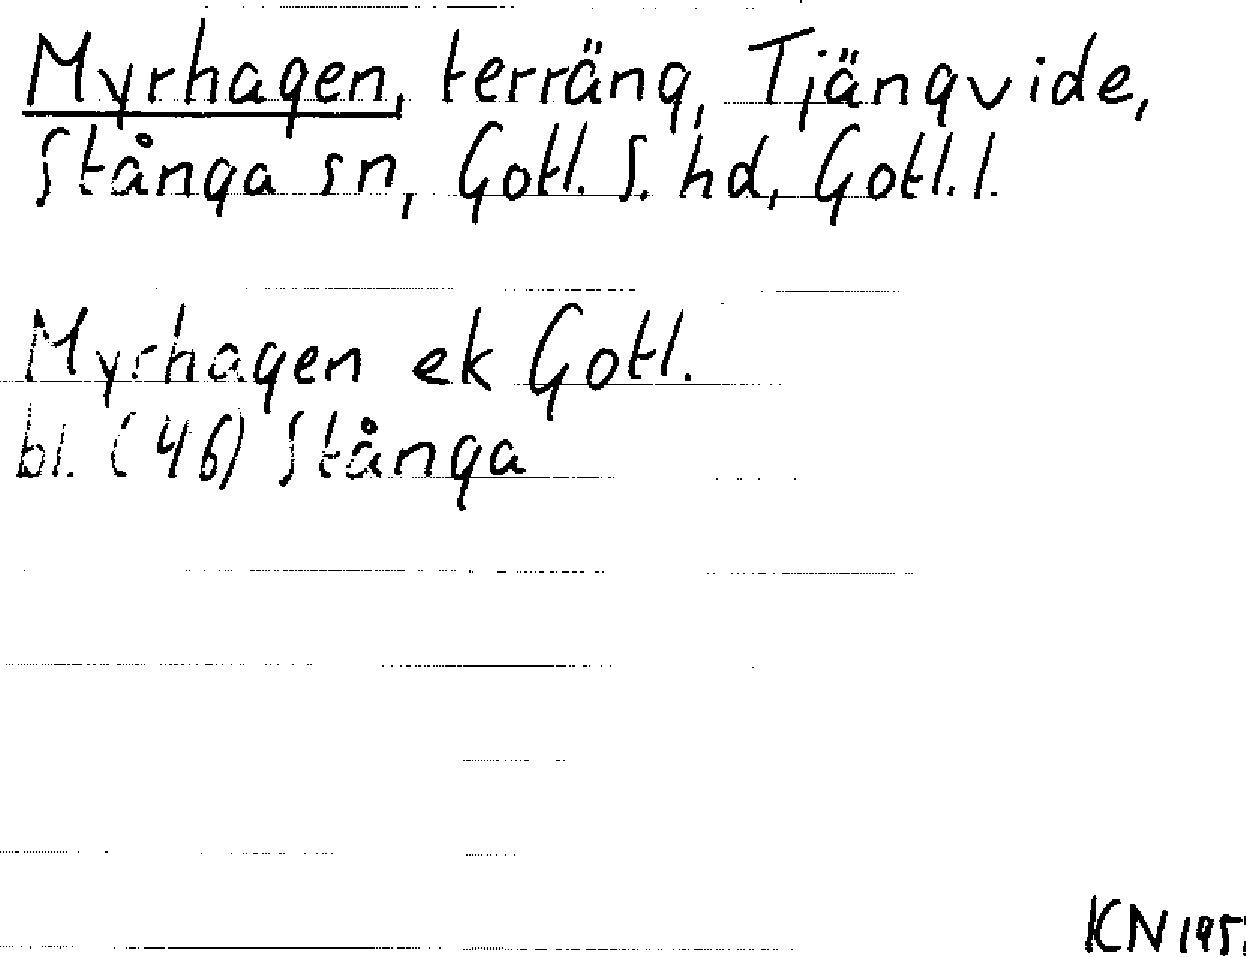 Myrhagen, terräng, Tjängvide,
Stånga sn, Gotl. S. hd, Gotl. l.
Myrhagen ek Gotl.
bl. (46) Stånga
KN